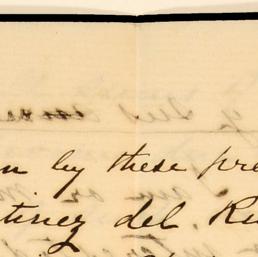 n by these pre
tinez del Ru